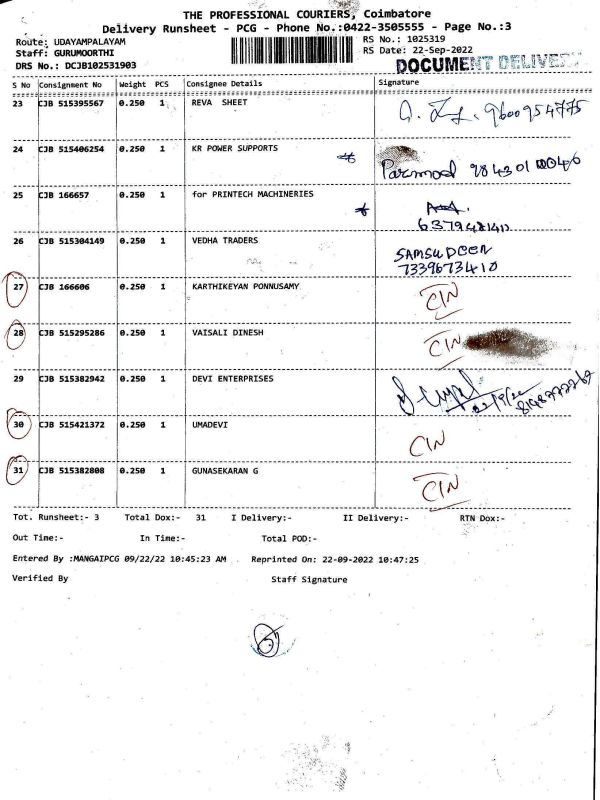 THE PROFESSIONAL COURIERS, Coimbatore
Delivery Runsheet - PCG - Phone No.:0422-3505555 - Page No.:3
Route: UDAYAMPALAYAM RS No.: 1025319
Staff: GURUMOORTHI RS Date: 22-Sep-2022
DRS No.: DCJB102531903 DOCUMENT DELIVERY
S No Consignment No Weight PCS Consignee Details Signature
23 CJB 515395567 0.250 1 REVA SHEET 9600954775
24 CJB 515406254 0.250 1 KR POWER SUPPORTS
Parmod
25 CJB 166657 0.250 1 for PRINTECH MACHINERIES
26 CJB 515304149 0.250 1 VEDHA TRADERS SAMSUDEEN
7339673410
27 CJB 166606 0.250 1 KARTHIKEYAN PONNUSAMY CIN
28 CJB 515295286 0.250 1 VAISALI DINESH CIN
29 CJB 515382942 0.250 1 DEVI ENTERPRISES
30 CJB 515421372 0.250 1 UMADEVI CIN
31 CJB 515382808 0.250 1 GUNASEKARAN G CIN
Tot. Runsheet:- 3 Total Dox:- 31 I Delivery:- II Delivery:- RTN Dox:-
Out Time:- In Time:- Total POD:-
Entered By :MANGAIPCG 09/22/22 10:45:23 AM Reprinted On: 22-09-2022 10:47:25
Verified By Staff Signature